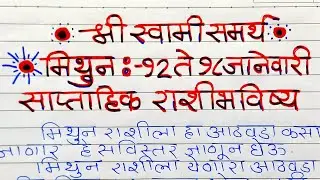 श्री स्वामी समर्थ
मिथुन :- १२ ते १८ जानेवारी
साप्ताहिक राशीभविष्य
मिथुन राशीला हा आठवडा कसा
जाणार हे सविस्तर जाणून घेऊ.
मिथुन राशीला येणारा आठवडा